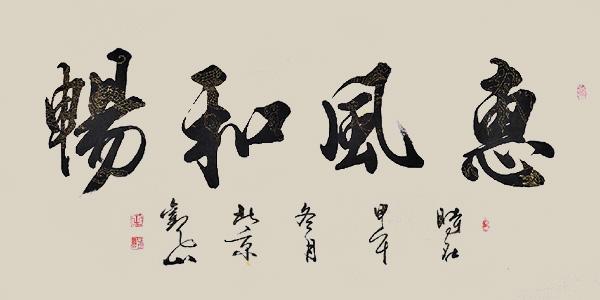 惠風和暢
時在
甲午
冬月
北京
劉山